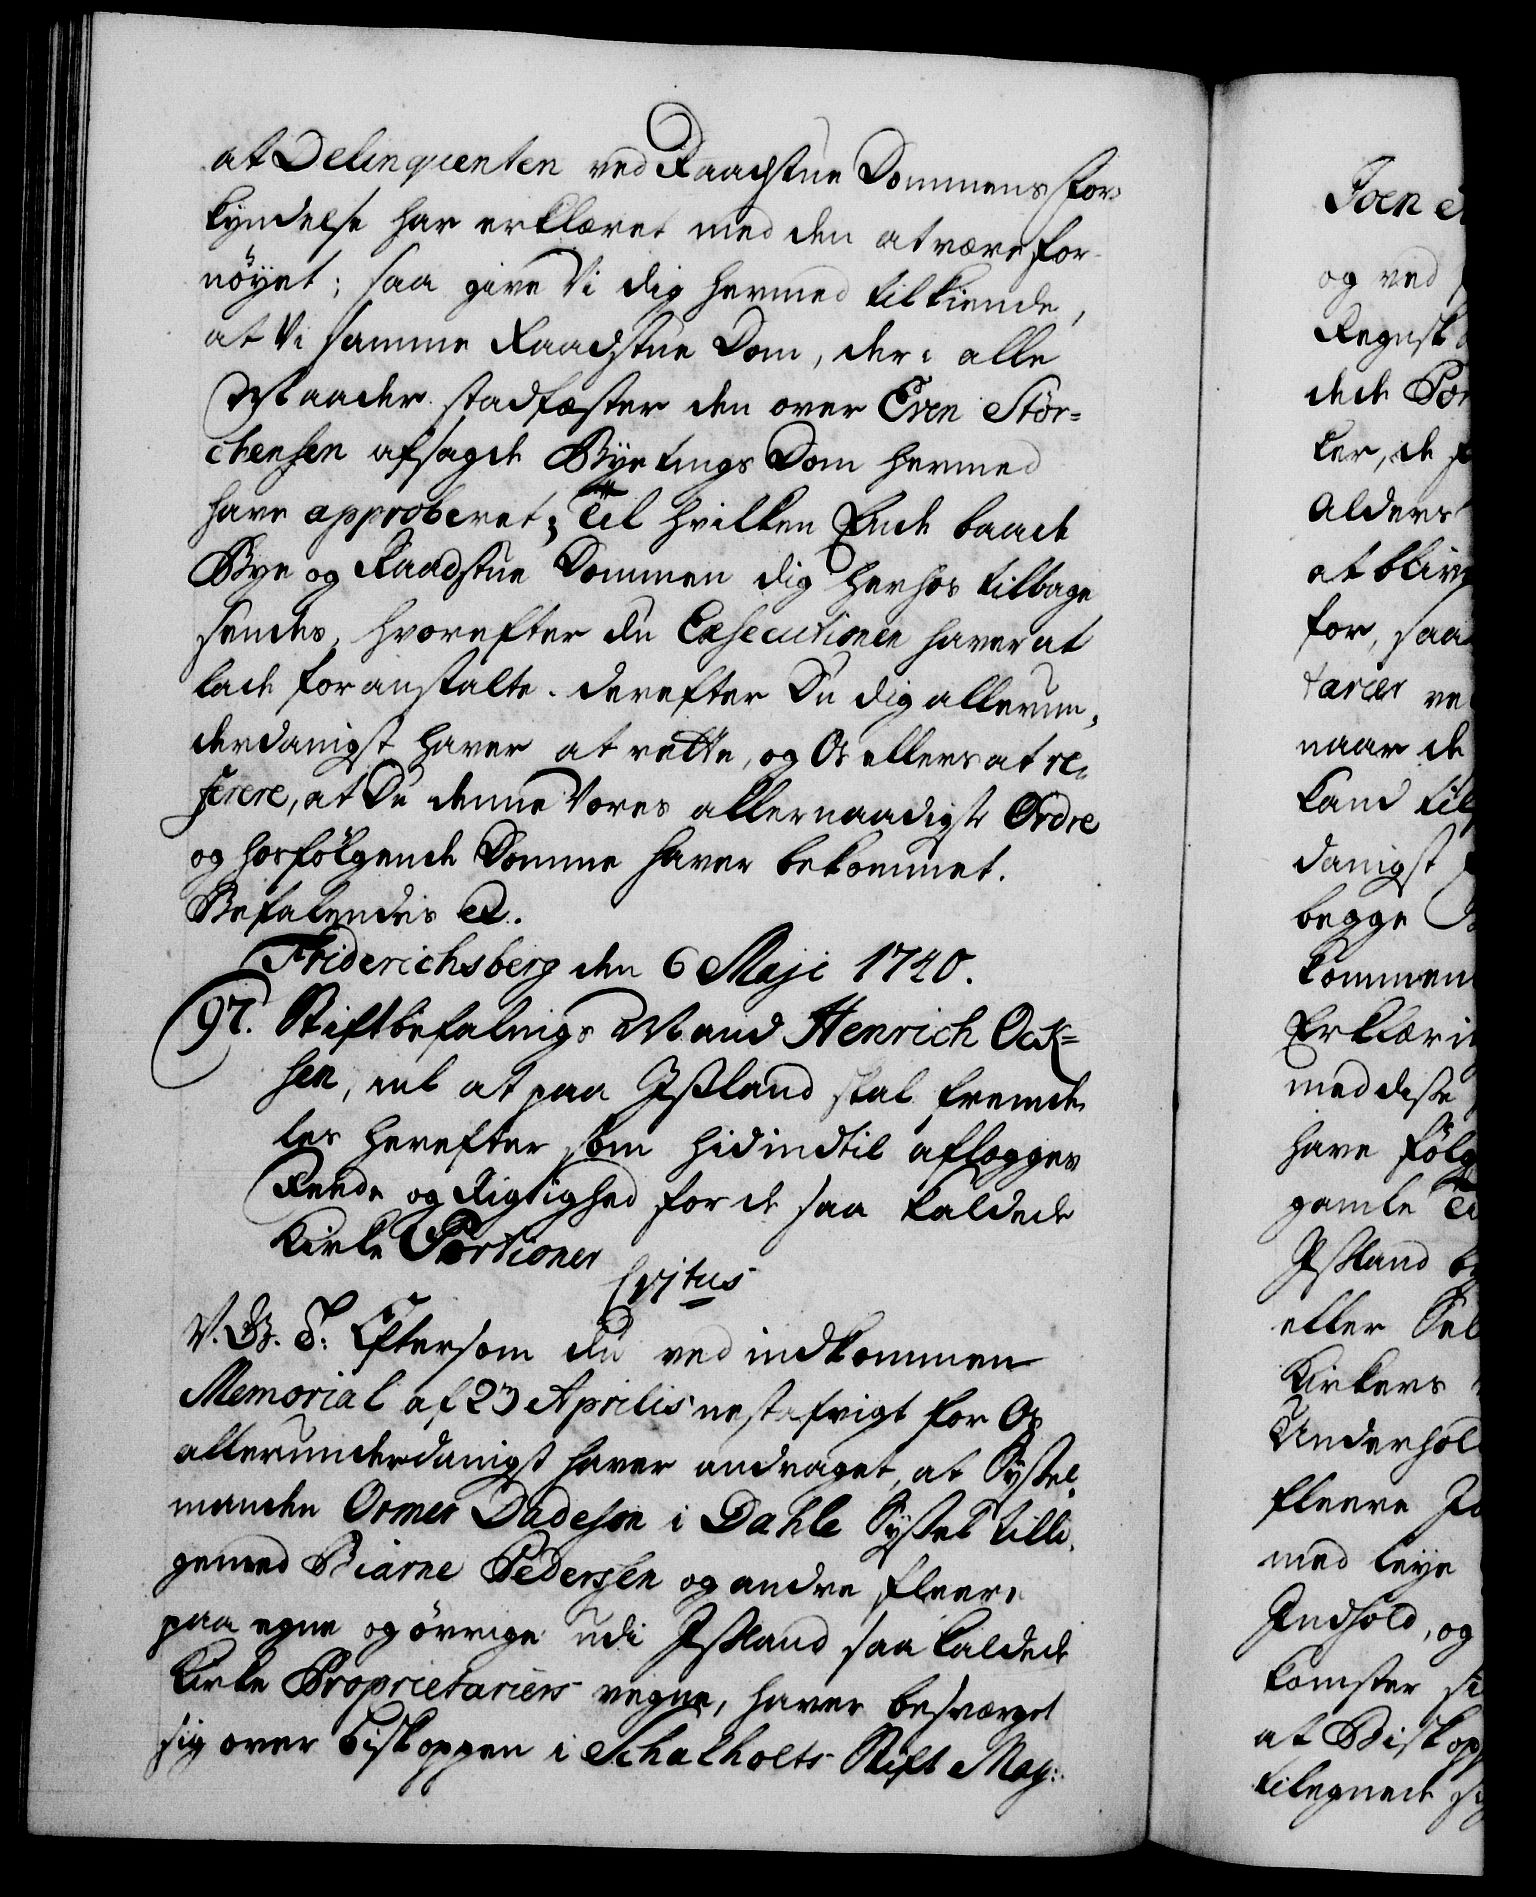 at Delinqventen ved Raadstue Dommens for-
kyndelse har erklæret med den at være for-
nöyet; saa give Vi dig hermed tilkiende,
at Vi samme Raadstue Dom, der i alle
Maader stadfæster den over Even Stör-
chensen afsagde Byetings Dom hermed
have approberet; Til hvilken Ende baade
Bye og Raadstue Dommen dig herhos tilbage
sendes, hvorefter du Exsecutionen haver at
lade foranstalte. Derefter Du dig allerun-
derdanigst haver at rette, og Os ellers at re-
ferere, at Du denne Vores allernaadigste Ordre
og hosfölgende Domme haver bekommet.
Befalendis &.
Friderichsberg den 6 Maji 1740.
97. Stiftbefalnigs Mand Henrich Ock-
sen, anl at paa Island skal fremde-
les herefter som hidindtil aflægges
Reede og Rigtighed for de saa kaldede
Kirke Portioner
V. G. T: Eftersom du ved indkommen
Memorial af 23 Aprilis nestafvigt for Os
allerunderdanigst haver andraget, at Syssel-
manden Ormer Dadeson i Dahle Syssel tilli-
gemed Biarne Pedersen og andre fleere
paa egne og övrige udi Island saa kaldede
Kirke Proprietariers vegne, haver besværget
sig over Biskoppen i Schalholts Stift Mag:
Joen
og ved
Regnsk
dede Por
ker, de
Alders
at blive
for, saa
tarier ve
naar de
kand til
danigst
begge
kommen
Erklæri
med disse
have fölg
gamle
Island
eller Sel
Kirkers
Underhol
fleere
med leye
Indhold, og
komster
at Biskop
tilegnede